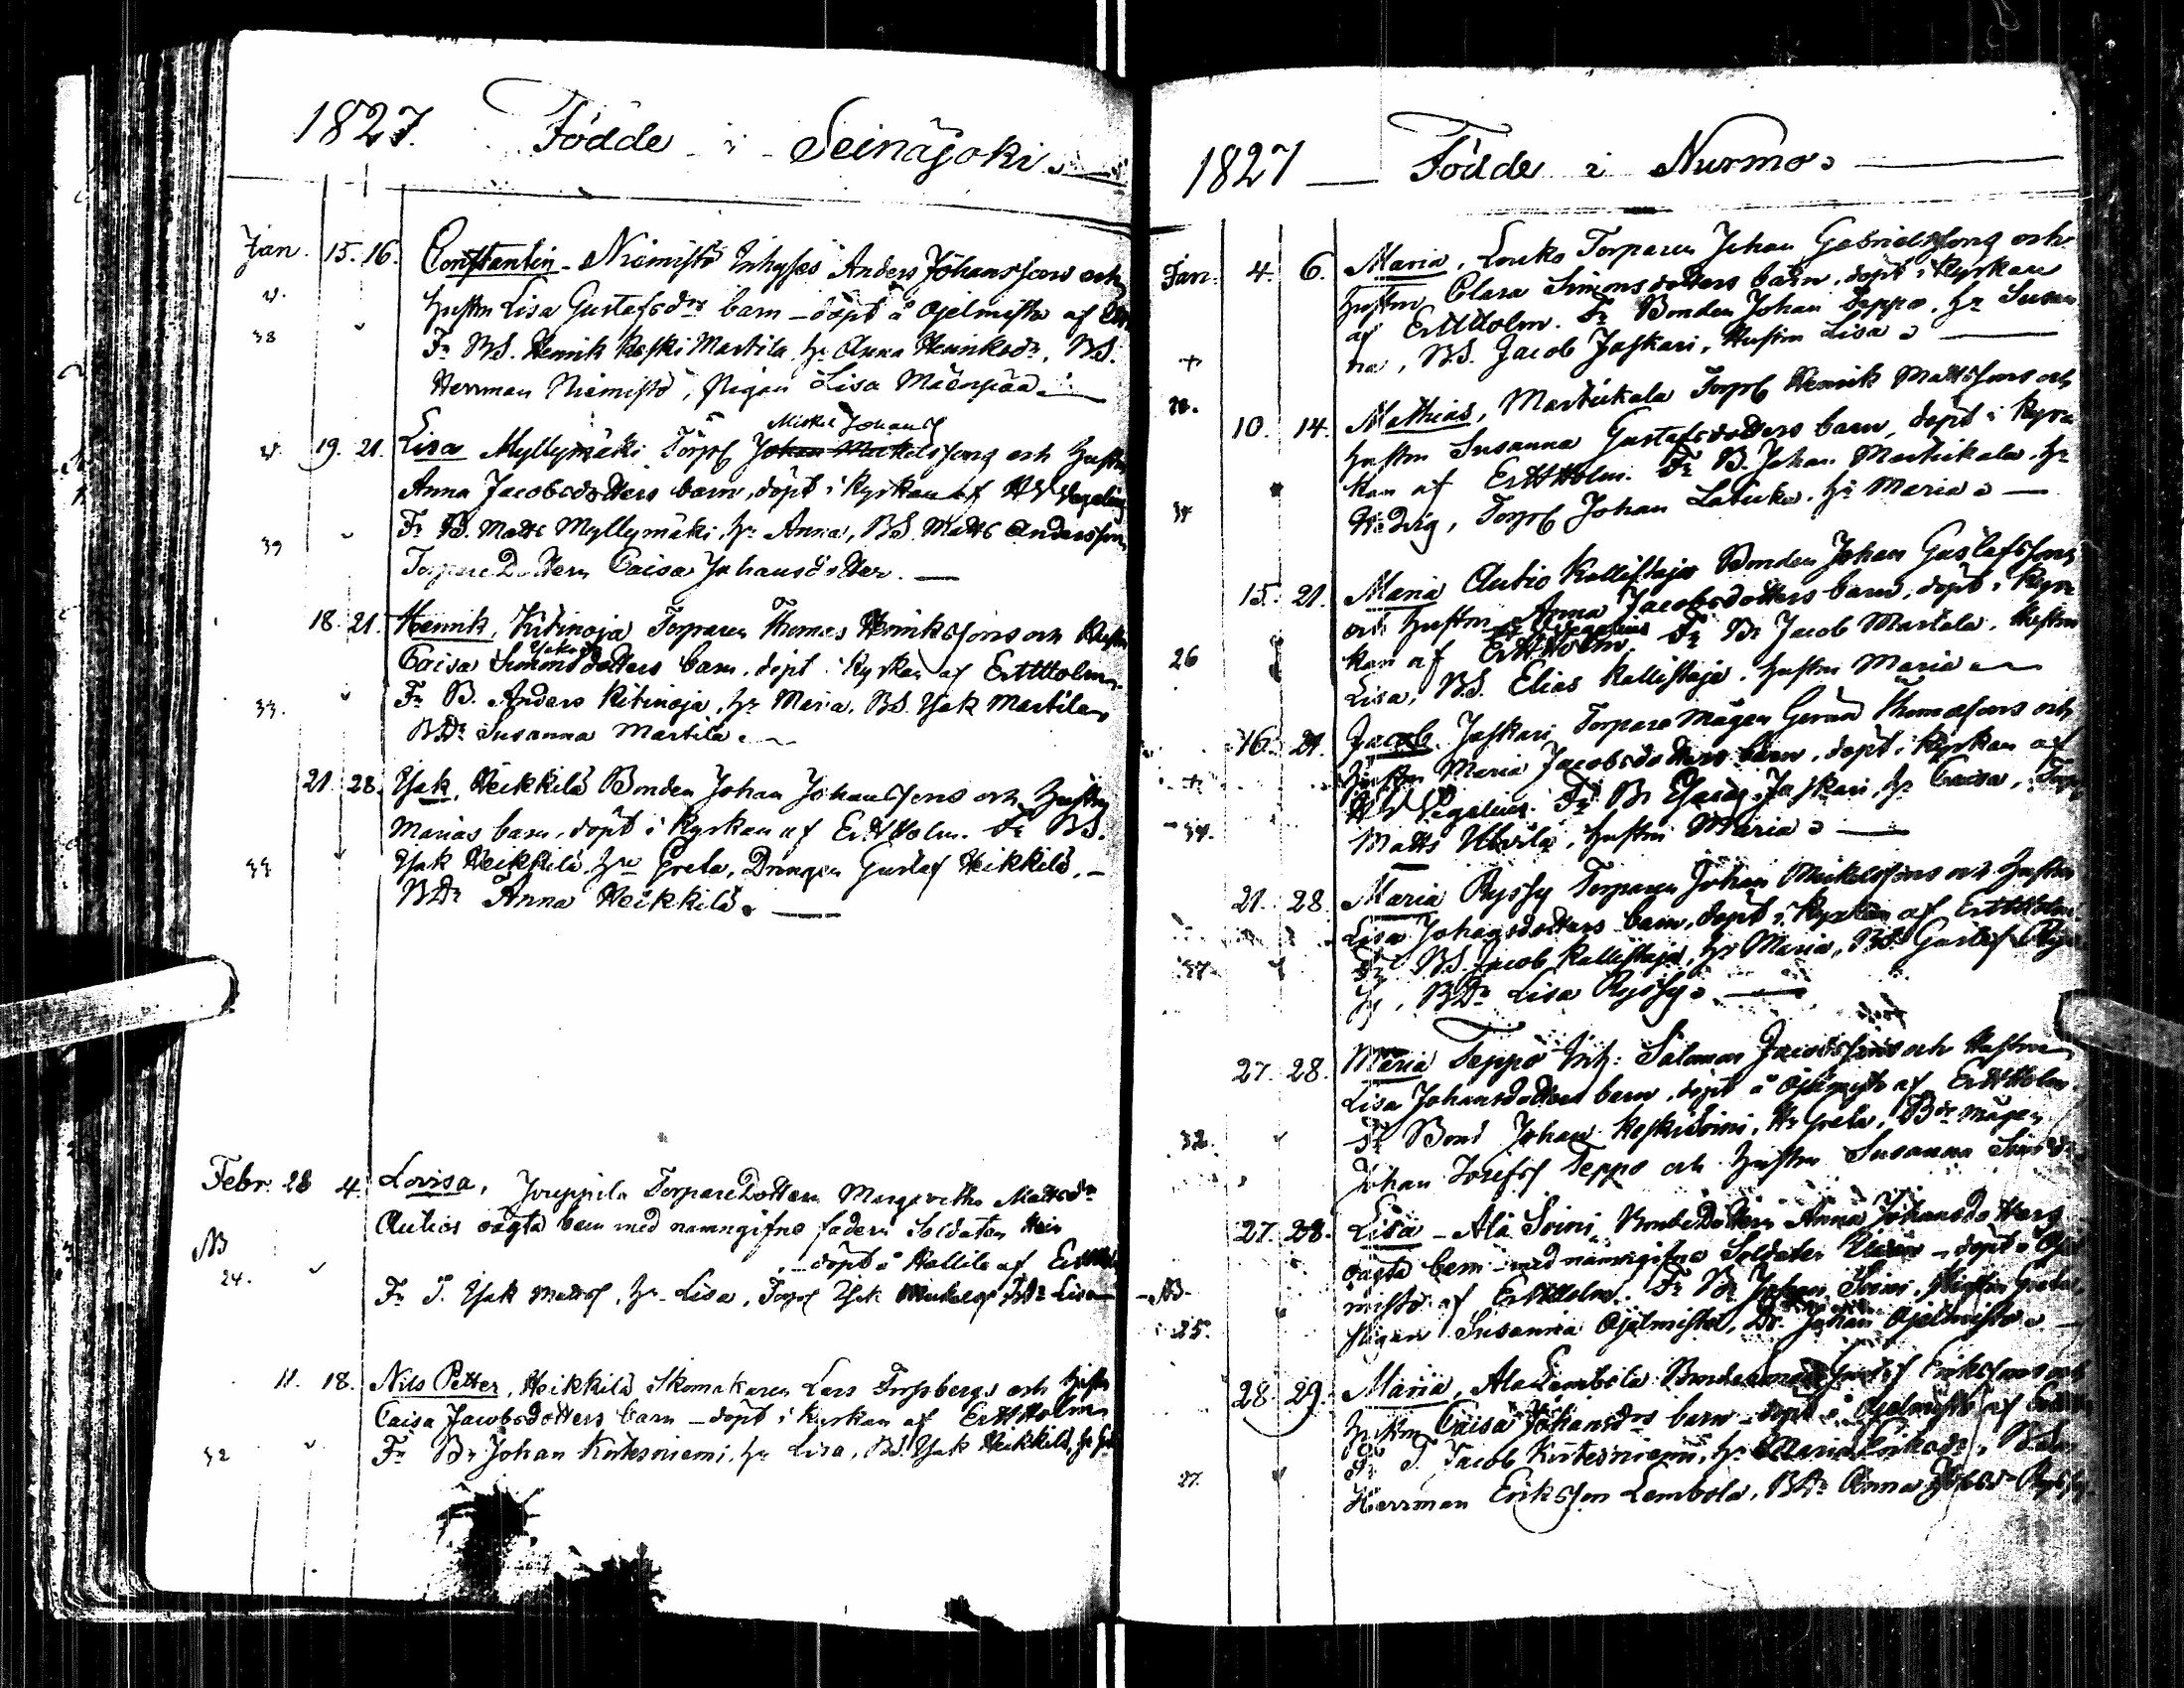 1827. Födde i Seinäjoki.
Jan. 15. 16. Constantin - Niemistö Inhyses Anders Johanssons och
v. hustru Lisa Gustafsdrs barn - döpt å Ojelmisto af
38 Fr BS. Henrik Keski Martila, hr Anna Henriksdr, BS.
Herrman Niemistö, Pigan Lisa Mäenpää.
Mickel Johans
v. 19. 21. Lisa Myllymäki Torp Johan Mickelssons och hustru
Anna Jacobsdotters barn, döpt i Kyrkan af
39 Fr B. Matts Myllymäki, hr Anna, BS. Matts Andersson,
Torpare Dottern Caisa Johansdotter.
18. 21. Henrik, Kitinoja Torparen Thomas Henrikssons och Hustru
Caisa Simonsdotters barn, döpt i Kyrkan af ErHHolm.
33. Fr B. Anders Kitinoja, hr Maria, BS. Isak Martila,
BDr Susanna Martila.
21. 28. Isak, Heikkilä Bonden Johan Johanssons och hustru
Marias barn, döpt i Kyrkan af ErHHolm. Fr BS.
33 Isak Heikkilä, hru Greta, Drängen Gustaf Heikkilä, -
BDr Anna Heikkilä.
Febr. 28 4. Lovisa, Jouppila TorpareDottern Margaretha Mattsdr
oägta barn med namngifne fadern Soldaten
NB döpt å Hallila af
24. Fr T. Isak Matts, hr Lisa, Torp Isak Mickels Lisa
11. 18. Nils Petter, Heikkilä Skomakaren Lars Forsbergs och hustru
Caisa Jacobsdotters barn - döpt i Kyrkan af ErHHolm
32 Fr Br Johan Kortesniemi, hr Lisa, BS. Isak Heikkilä,
1827 Födde i Nurmo
Jan. 4. 6. Maria, Louko Torparen Johan Gabrielssons och
hustru Clara Simonsdotters barn, döpt i Kyrkan
af ErHHolm. Fr Bonden Johan Teppo, hr Susan
+ na, BS. Jacob Jaskari, Hustru Lisa
10. 14. Mathias, Martikkala Torp Henrik Mattssons och
hustru Susanna Gustafsdotters barn, döpt i Kyr
kan af ErHHolm. Fr B. Johan Martikkala, hr
34 Hedvig, Torp Johan Latikka, hr Maria
15. 21. Maria Autio Kallistaja Bonden Johan Gustafssons
och hustru Anna Jacobsdotters barn, döpt i Kyr
26 kan af ErHHolm. Fr Br Jacob Martala, Hustru
Lisa, BS. Elias Kallistaja, hustru Maria
16. 21. Jacob Jaskari Torpare Mågen Thomassons och
+ hustru Maria Jacobsdotters barn, döpt i Kyrkan af
Fr Br Jaskari, hr Caisa,
34. Matts, hustru Maria
21. 28. Maria Ryssy Torparen Johan Mickelssons och hustru
Lisa Johansdotters barn, döpt i Kyrkan af ErHHolm
37 Fr BS. Jacob Kallistaja, hr Maria, BS Gustaf Rys
sy, BDr Lisa Ryssy
27. 28. Maria Teppo Inh: Salomon Jacobssons och Hustru
Lisa Johansdotters barn, döpt å Ojelmisto af ErHHolm.
32. Fr Bond Johan Keskisoini, Hr Greta, Bde mågen
Johan Josefs Teppo och hustru Susanna
27. 28. Lisa - Ala Soini BondeDottern Anna Johansdotters
oägta barn med namngifne Soldaten - döpt å Ojel
NB misto af ErHHolm. Fr Br Johan Soini, Hustru Greta,
25. Pigan Susanna Ojelmisto, Dr. Johan Ojelmisto
28 29. Maria, Ala Lembola Erikssons och
hustru Caisa Johansdrs barn - döpt å Ojelmisto af
Fr T. Jacob Kortesniemi, hr Maria Eriksdr,
27. Herrman Eriksson Lembola, BDr Anna